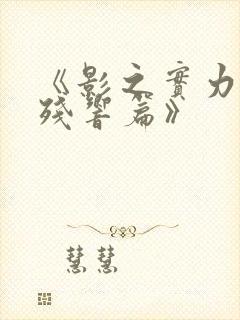 《影之實力
殘響篇》
慧慧